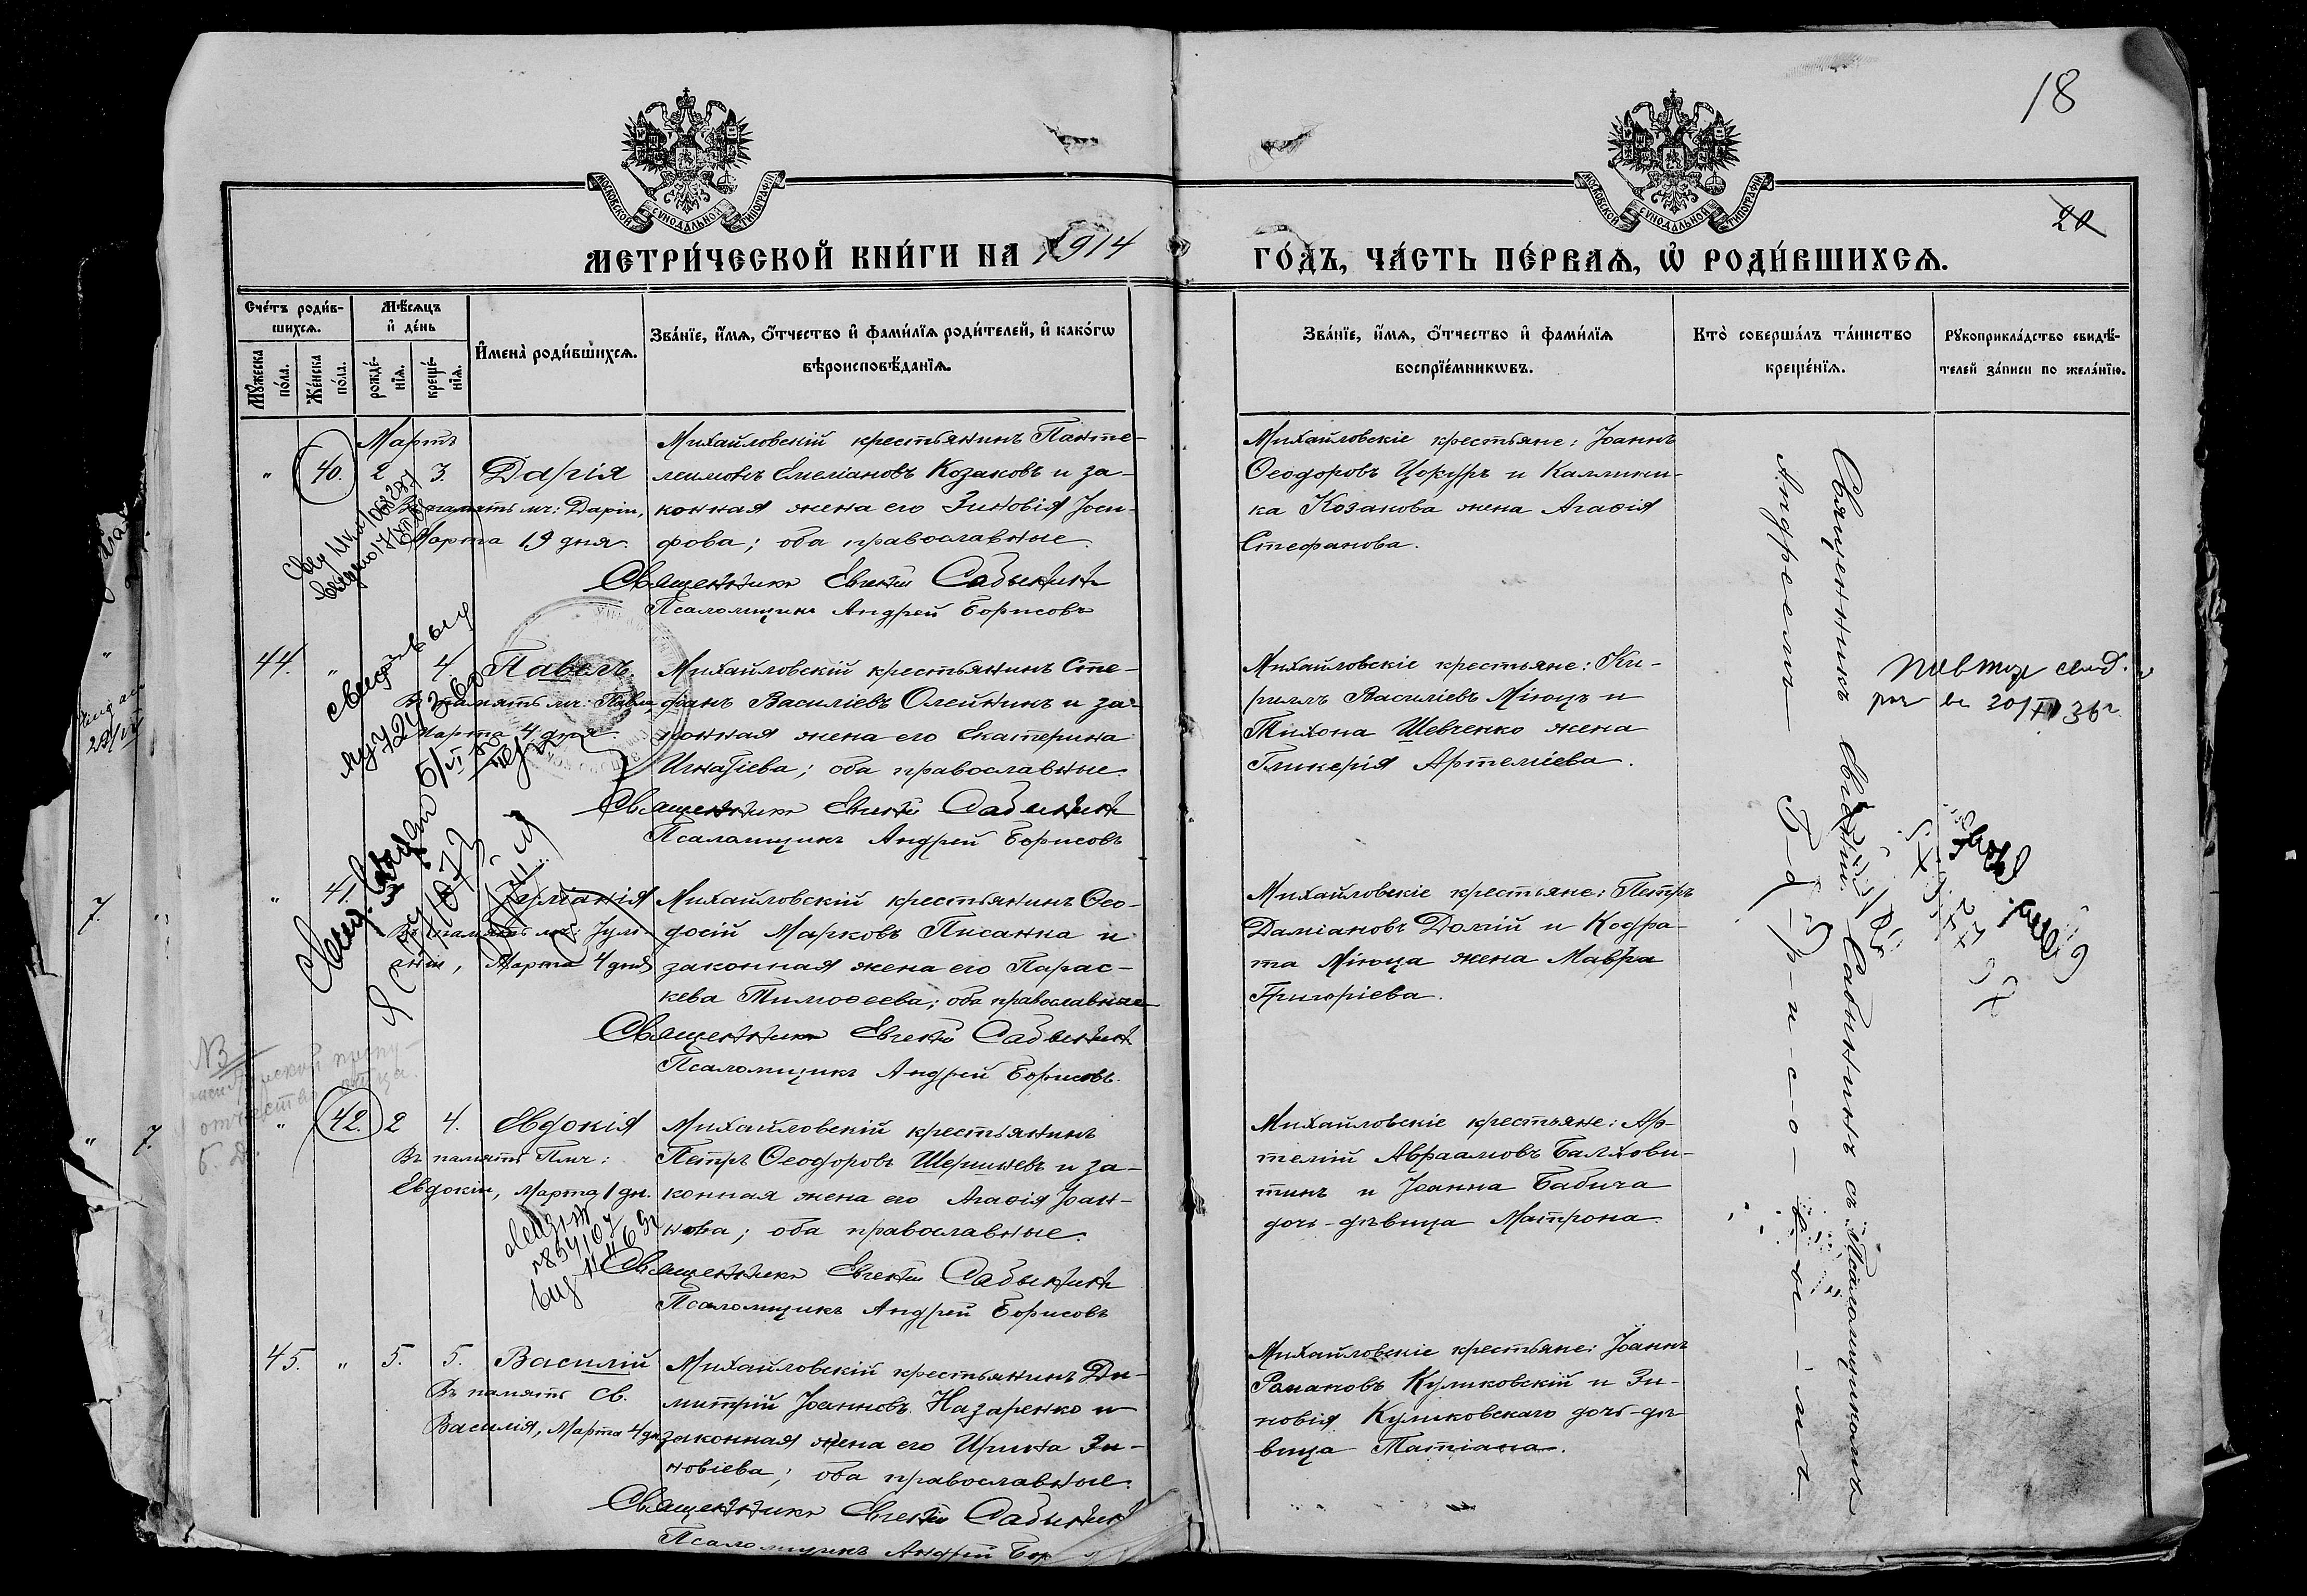 18
20
МОСКОВСКОЙ СУНОДАЛЬНОЙ ТИПОГРАФІИ
МОСКОВСКОЙ СУНОДАЛЬНОЙ ТИПОГРАФІИ
МЕТРИ́ЧЕСКОЙ КНИ́ГИ НА 1914
ГО́ДЪ, ЧА́СТЬ ПЕ́РВАѦ, Ѡ҆ РОДИ́ВШИХСѦ.
Сче́тъ роди́в-
шихсѧ.
Мꙋ́жеска
по́ла.
Же́нска
по́ла.
Мѣ́сѧцъ
и҆ де́нь
рожде́-
нїѧ.
креще́-
нїѧ.
И҆мена̀ роди́вшихсѧ.
Зва́нїе, и҆́мѧ, ѻ҆́тчество и҆ фами́лїѧ роди́телей, и҆ како́гѡ
вѣроисповѣ́данїѧ.
Зва́нїе, и҆́мѧ, ѻ҆́тчество и҆ фами́лїѧ
воспрїе́мникѡвъ.
Кто̀ соверша́лъ та́инство
креще́нїѧ.
Рꙋкоприкла́дство свидѣ́-
телей за́писи по жела́нїю.
Мартъ
" 40. 2 3. Дарія
Въ память мч: Даріи,
Марта 19 дня.
Михайловскій крестьянинъ Панте-
леимонъ Емеліановъ Козаковъ и за-
конная жена его Зиновія Іоси-
фова; оба православные.
Священникъ Евгеній Сабынинъ
Псаломщикъ Андрей Борисовъ
Михайловскіе крестьяне: Іоаннъ
Ѳеодоровъ Цокуръ и Каллини-
ка Козакова жена Агаѳія
Стефанова.
44. " 4. Павелъ
Въ память мч: Павла,
Марта 4 дня.
Михайловскій крестьянинъ Сте-
фанъ Василіевъ Олейникъ и за-
конная жена его Екатерина
Игнатіева; оба православные.
Священникъ Евгеній Сабынинъ
Псаломщикъ Андрей Борисовъ
Михайловскіе крестьяне: Ки-
риллъ Василіевъ Міюцъ и
Тихона Шевченко жена
Гликерія Артеміева.
" 41.
Въ память мч: Іулі-
аніи, Марта 4 дня
Михайловскій крестьянинъ Ѳео-
досій Марковъ Писанка и
законная жена его Парас-
кева Тимоѳеева; оба православные
Священникъ Евгеній Сабынинъ
Псаломщикъ Андрей Борисовъ.
Михайловскіе крестьяне: Петръ
Даміановъ Долгій и Кодра-
та Міюца жена Мавра
Григоріева.
" 42. 2 4. Евдокія
Въ память Пмч:
Евдокіи, Марта 1 дн.
Михайловскій крестьянинъ
Петръ Ѳеодоровъ Шершневъ и за-
конная жена его Агаѳія Іоан-
нова; оба православные.
Священникъ Евгеній Сабынинъ
Псаломщикъ Андрей Борисовъ
Михайловскіе крестьяне: Ар-
темій Авраамовъ Балхови-
тинъ и Іоанна Бабича
дочь-дѣвица Матрона.
45. " 5. 5. Василій
Въ память св.
Василія, Марта 4 дн.
Михайловскій крестьянинъ Ди-
митрій Іоанновъ Назаренко и
законная жена его Ирина Зи-
новіева; оба православные.
Священникъ Евгеній Сабынинъ
Псаломщикъ Андрей Бор
Михайловскіе крестьяне: Іоаннъ
Романовъ Куликовскій и Зи-
новія Куликовскаго дочь-дѣ-
вица Татіана.
Священникъ Евгеній Сабынинъ съ Псаломщикомъ
Андреемъ Б-о-р-и-с-о-в-ы-м-ъ.